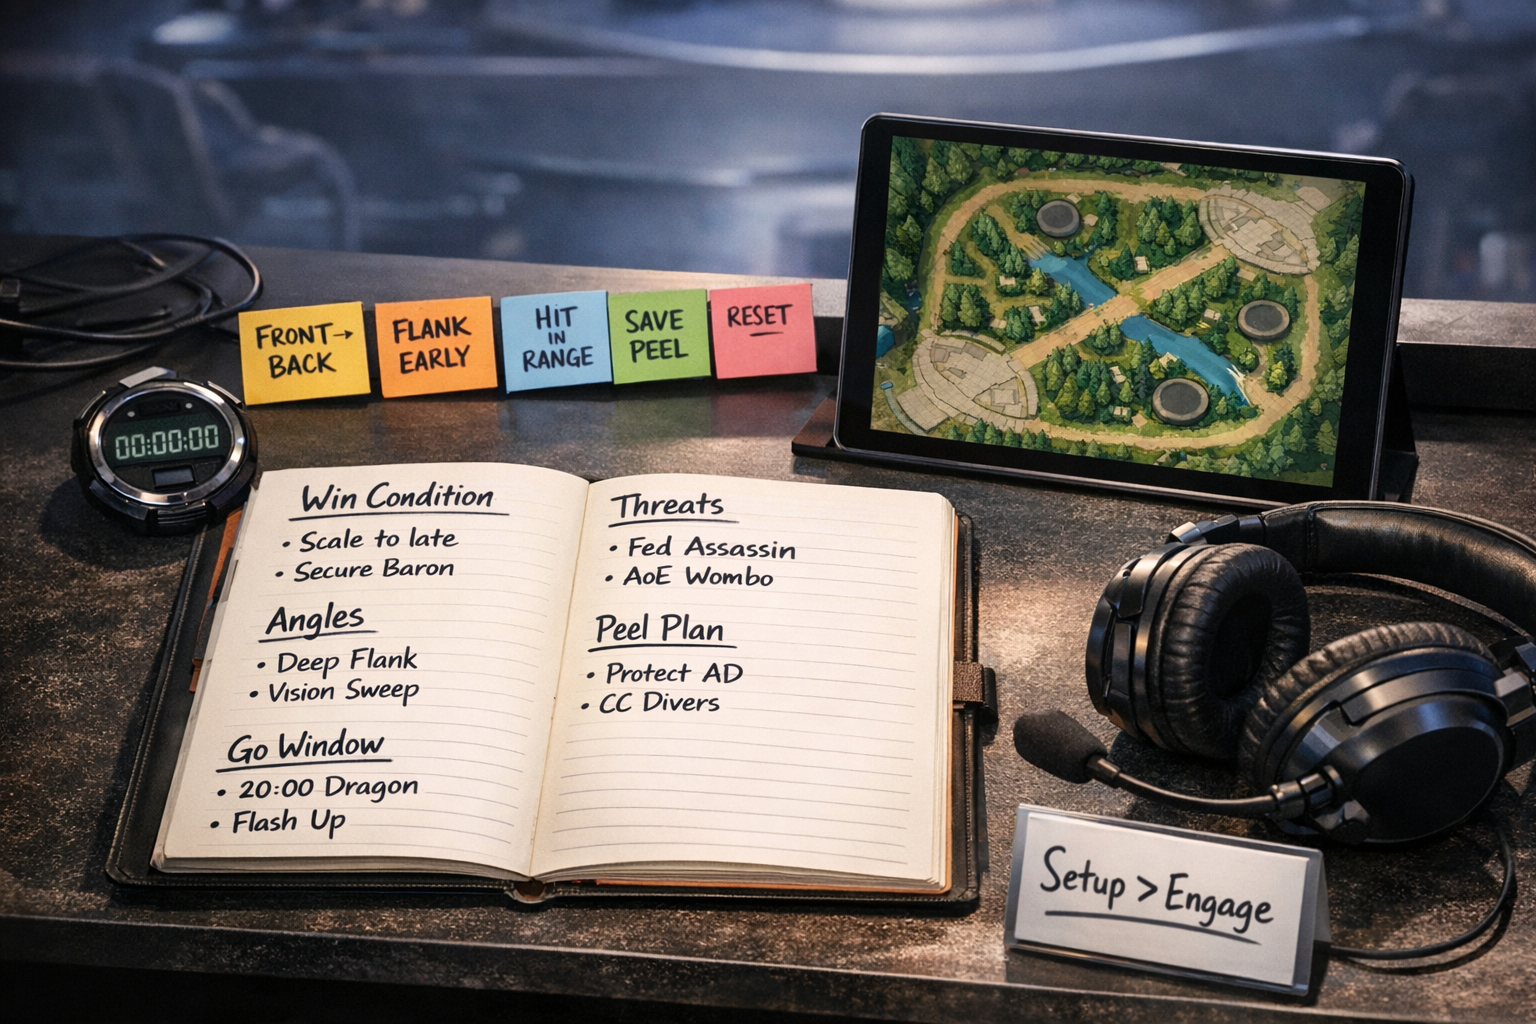 FRONT→
BACK
FLANK
EARLY
HIT
IN
RANGE
SAVE
PEEL
RESET
00:00:00
Win Condition
• Scale to late
• Secure Baron
Angles
• Deep Flank
• Vision Sweep
Go Window
• 20:00 Dragon
• Flash Up
Threats
• Fed Assassin
• AoE Wombo
Peel Plan
• Protect AD
• CC Divers
Setup > Engage